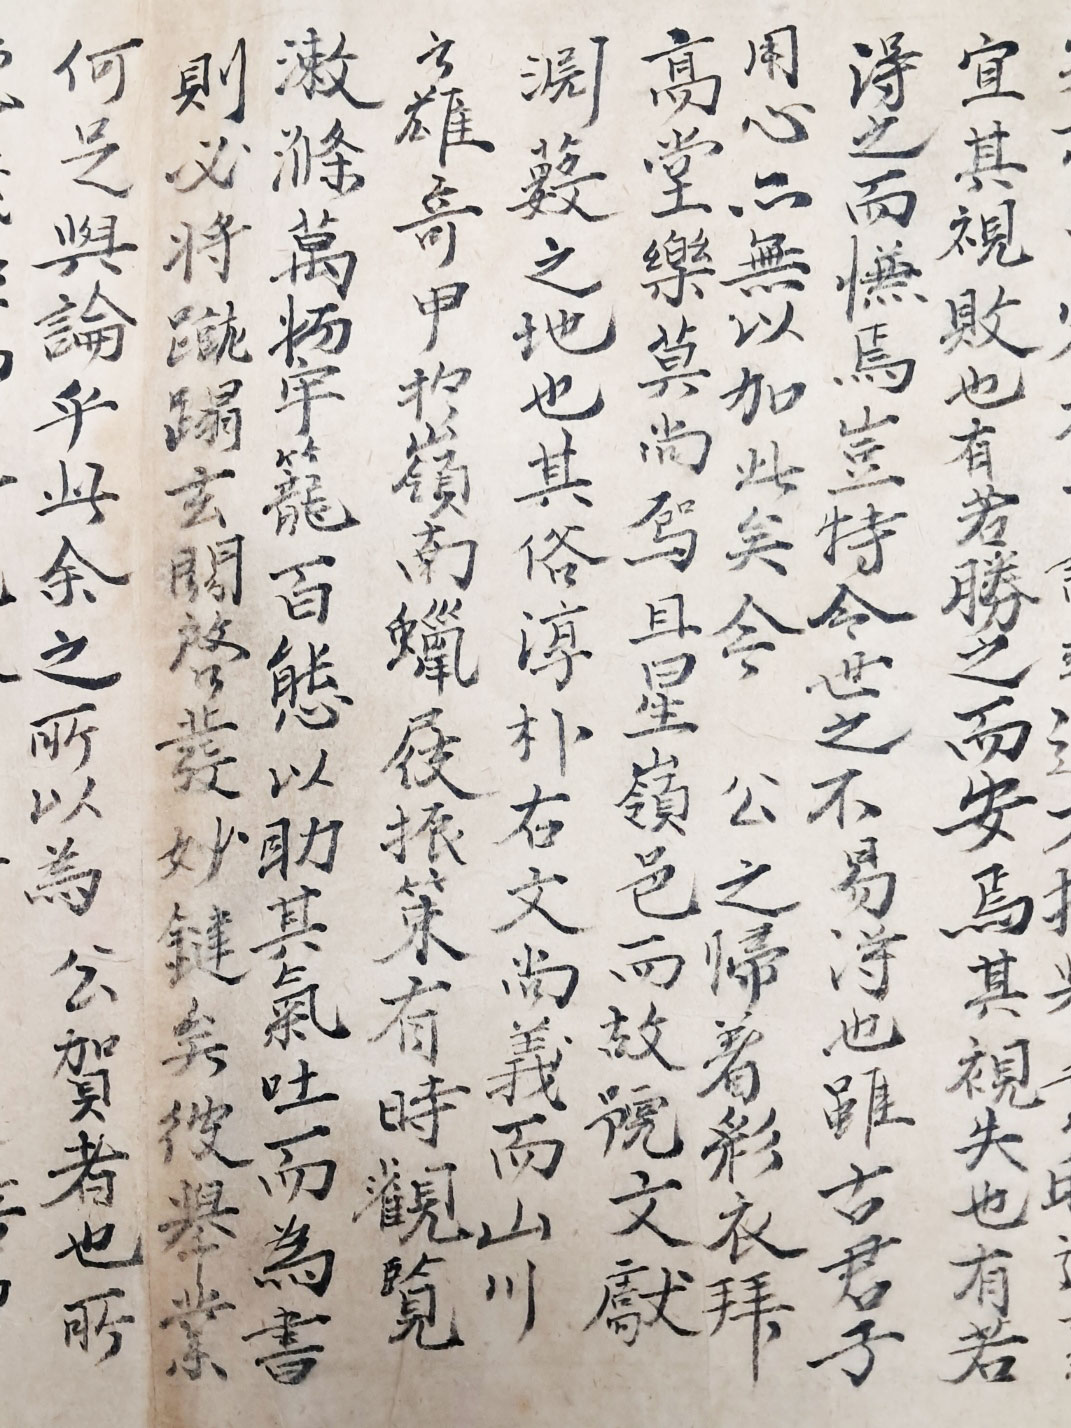 宜其視敗也有若勝之而安焉其視失也有若
得之而慊焉豈特今世之不易得也雖古君子
用心亦無以加此矣今 公之歸着彩衣拜
高堂樂莫尚焉且星嶺邑而故號文獻
淵藪之地也其俗淳朴右文尚義而山川
之雄奇甲於嶺南蠟屐振策有時觀覽
漱滌萬物牢籠百態以助其氣吐而為書
則必將蹴蹋玄關啓發妙鍵矣彼舉業
何足與論乎此余之所以為 公賀者也所